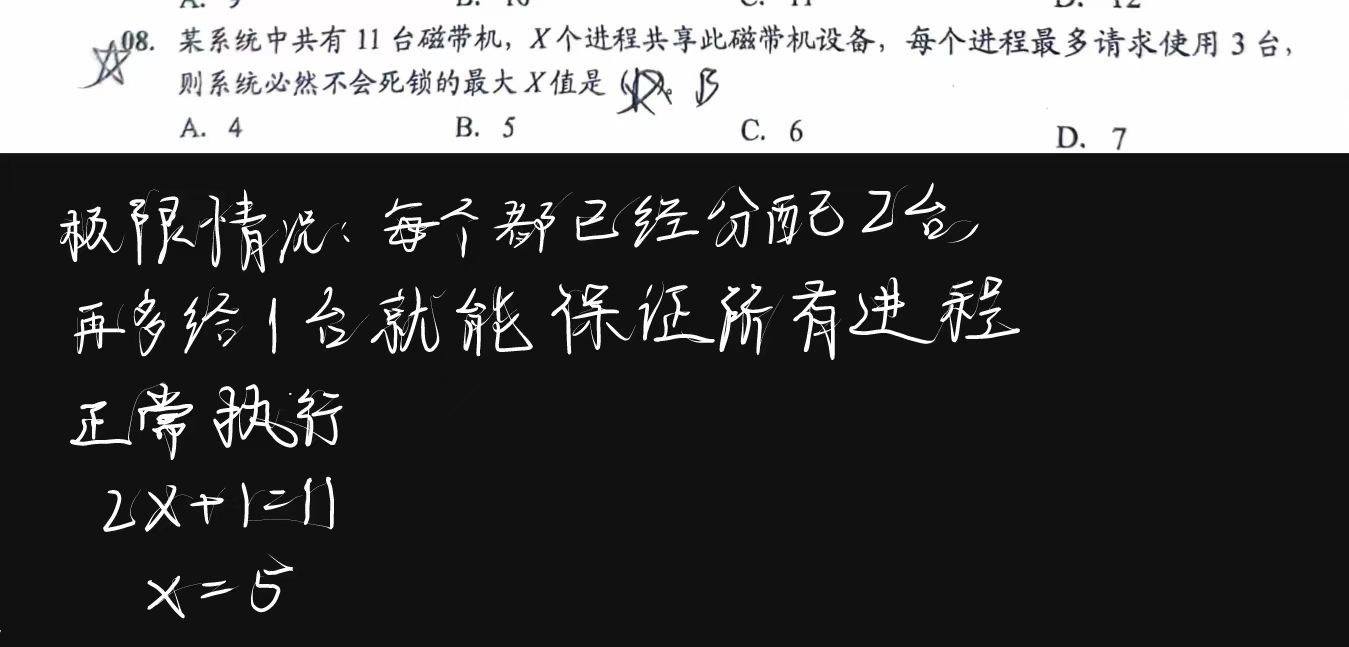 08. 某系统中共有 11 台磁带机，X 个进程共享此磁带机设备，每个进程最多请求使用 3 台，
则系统必然不会死锁的最大 X 值是（ ）。 B
A. 4 B. 5 C. 6 D. 7
极限情况：每个都已经分配2台
再多给1台就能保证所有进程
正常执行
2x+1=11
x=5